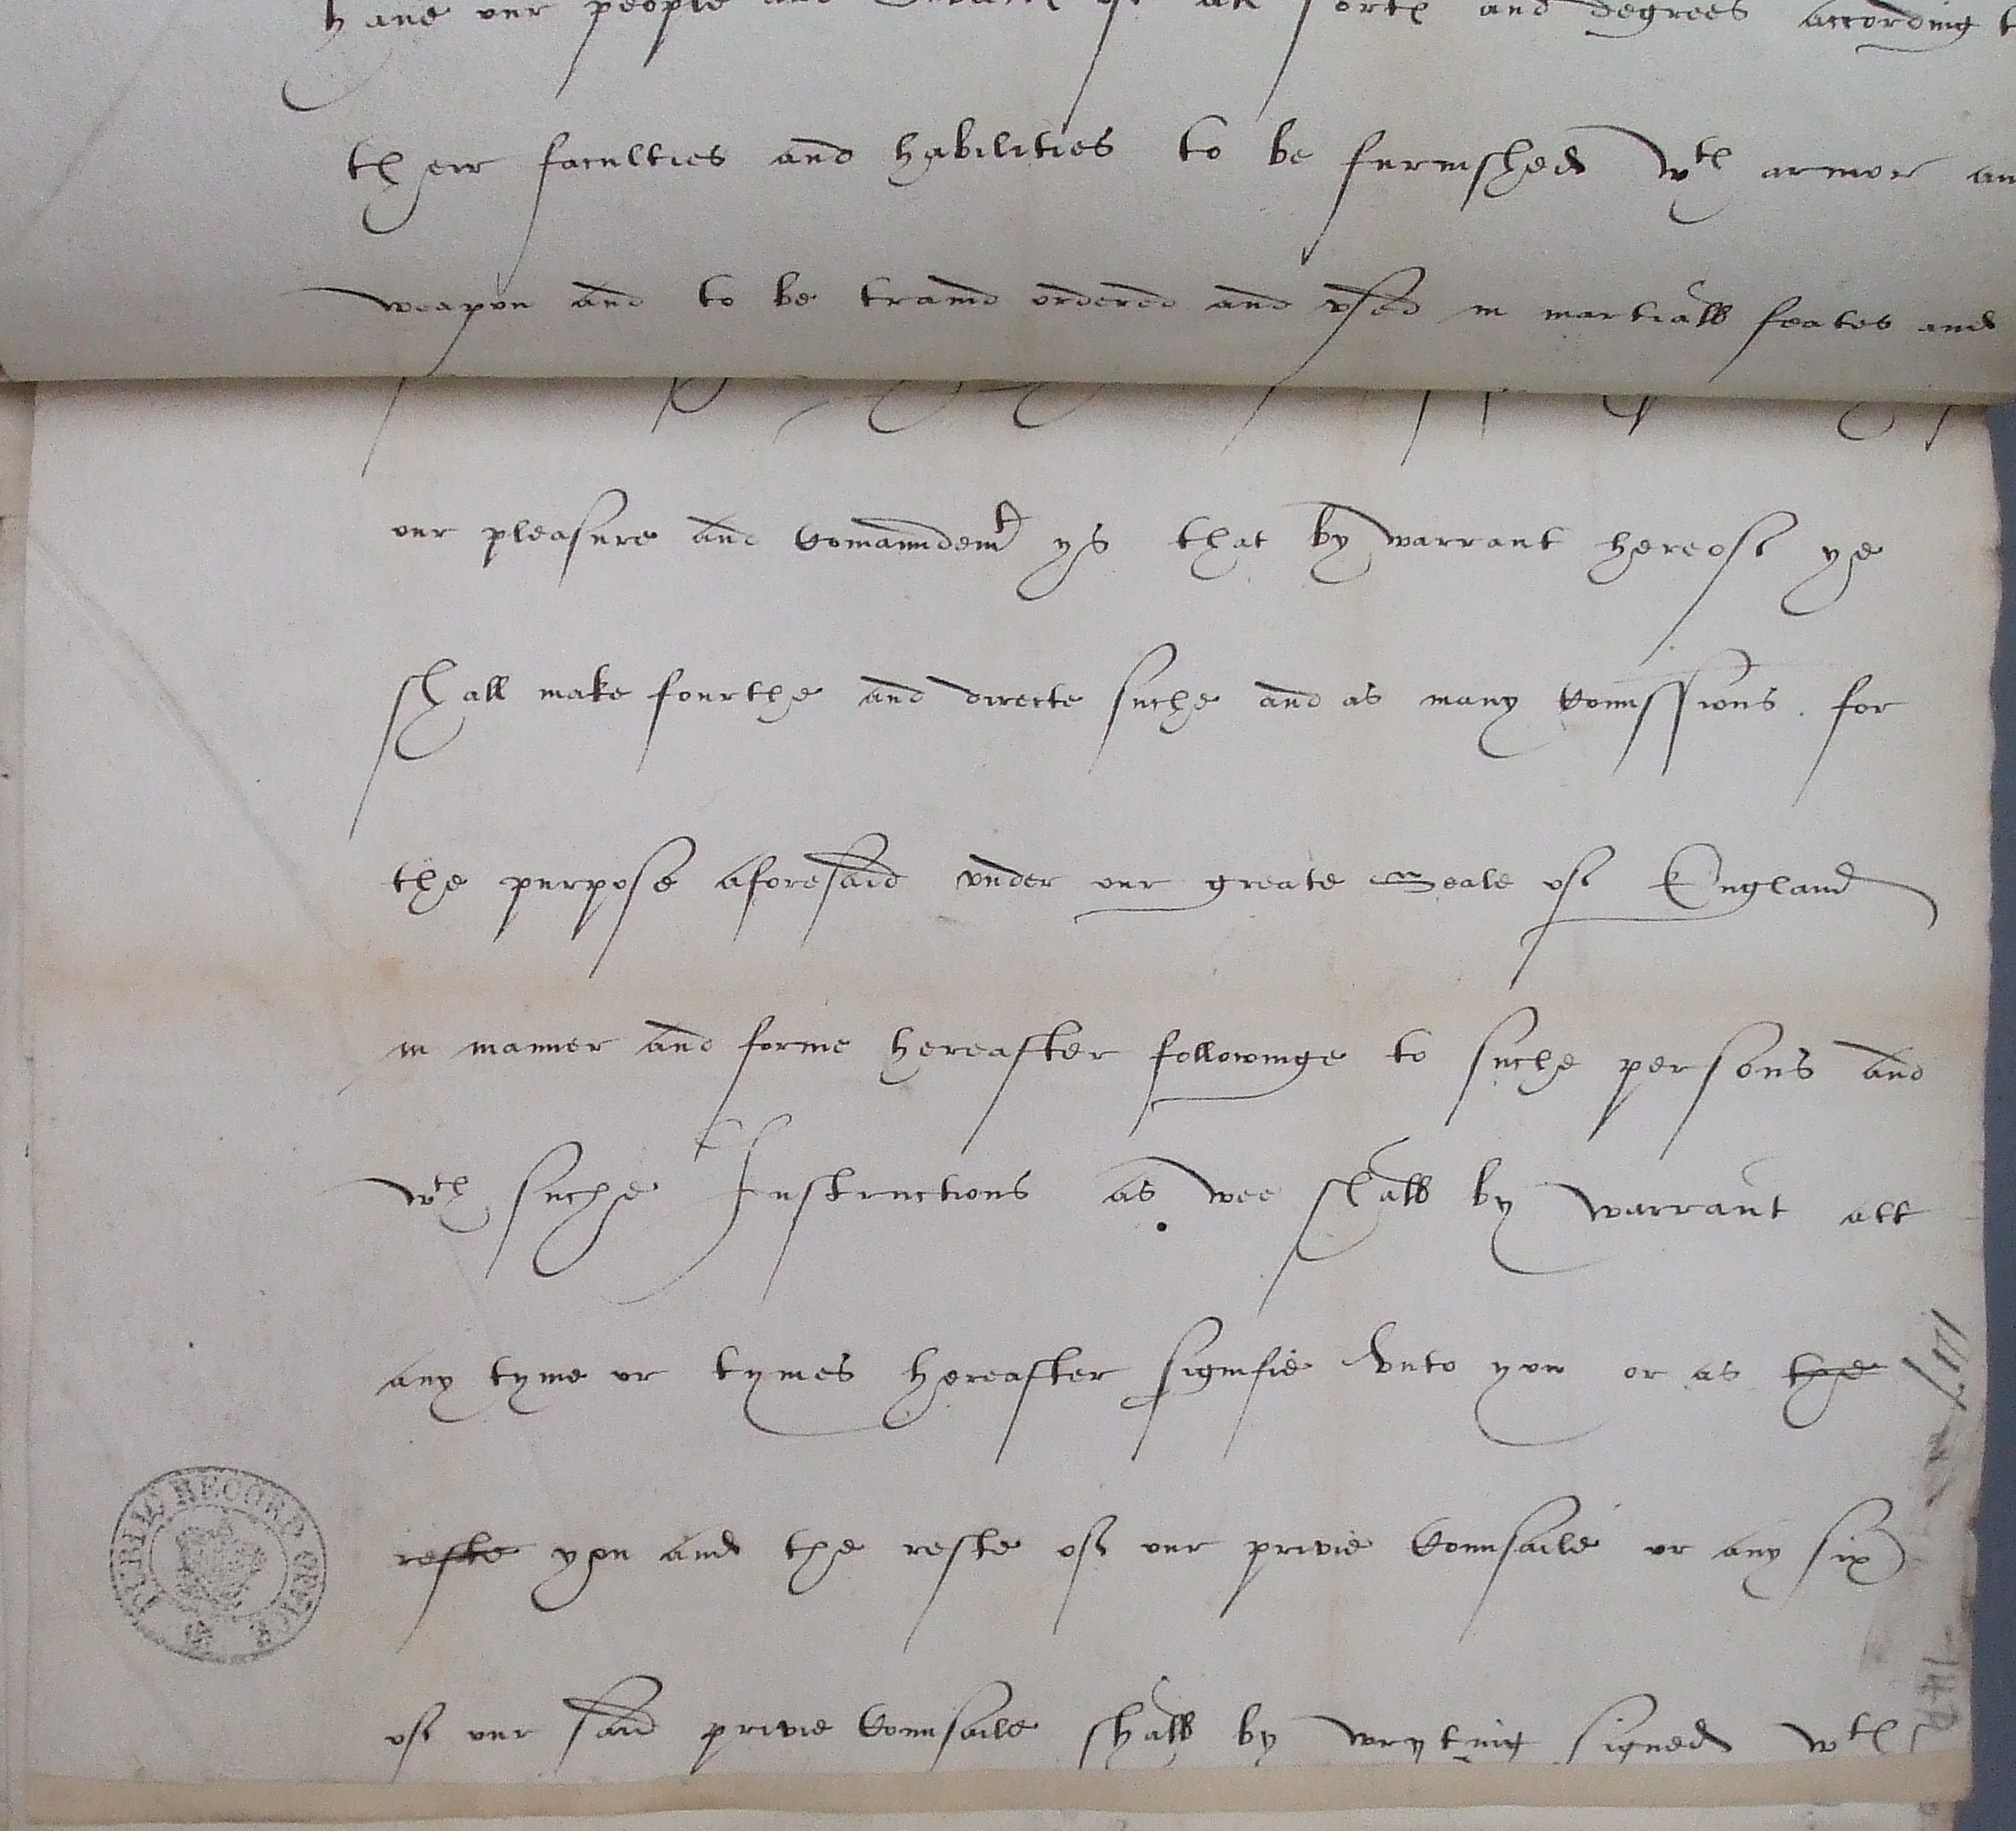 haue our people and of all sort and degrees according t
their faculties and habilities to be furnished wth armor an
weapon and to be traind ordered and vsed in martiall feates and
our pleasure and Comaundemt ys that by warrant hereof ye
shall make fourthe and directe suche and as many Comissions for
the purpose aforesaid vnder our greate Seale of England
in manner and forme hereafter followinge to suche persons and
wth suche Instructions as wee shall by warrant att
any tyme or tymes hereafter signifie vnto you or as the
reste you and the reste of our privie Counsaile or any six
of our said privie Counsaile shall by wryting signed wth
PUBLIC RECORD OFFICE